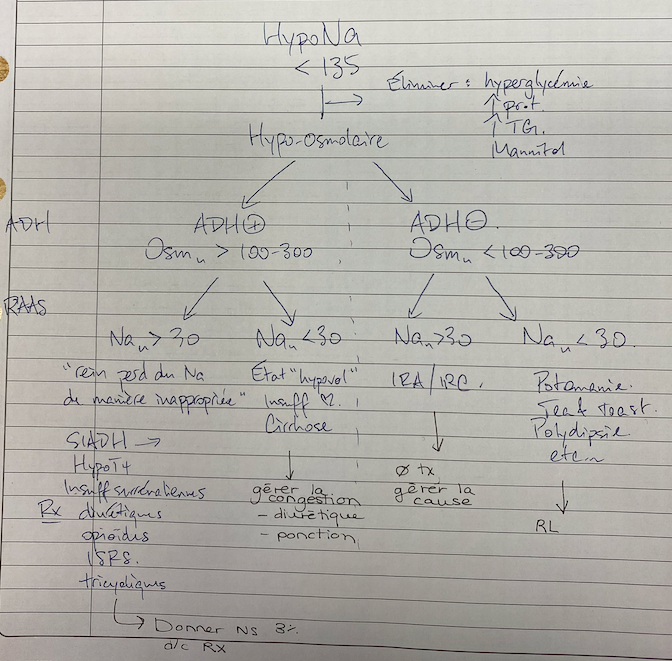 HypoNa
< 135
Éliminer : hyperglycémie
↑ prot.
↑ TG.
Mannitol
Hypo-osmolaire
ADH
ADH⊕
ADH⊖.
Osmᵤ > 100-300
Osmᵤ < 100-300
RAAS
Naᵤ > 30
Naᵤ < 30
Naᵤ > 30
Naᵤ < 30.
"rein perd du Na
de manière inappropriée"
État "hypovol"
Insuff ♡.
Cirrhose
IRA / IRC.
Potomanie.
Tea & toast.
Polydipsie
etc...
SIADH →
HypoT4
Insuff surrénaliennes
Rx diurétiques
opioïdes
ISRS.
tricycliques
gérer la
congestion
- diurétique
- ponction
∅ tx
gérer la
cause
RL
Donner NS 3%
d/c RX